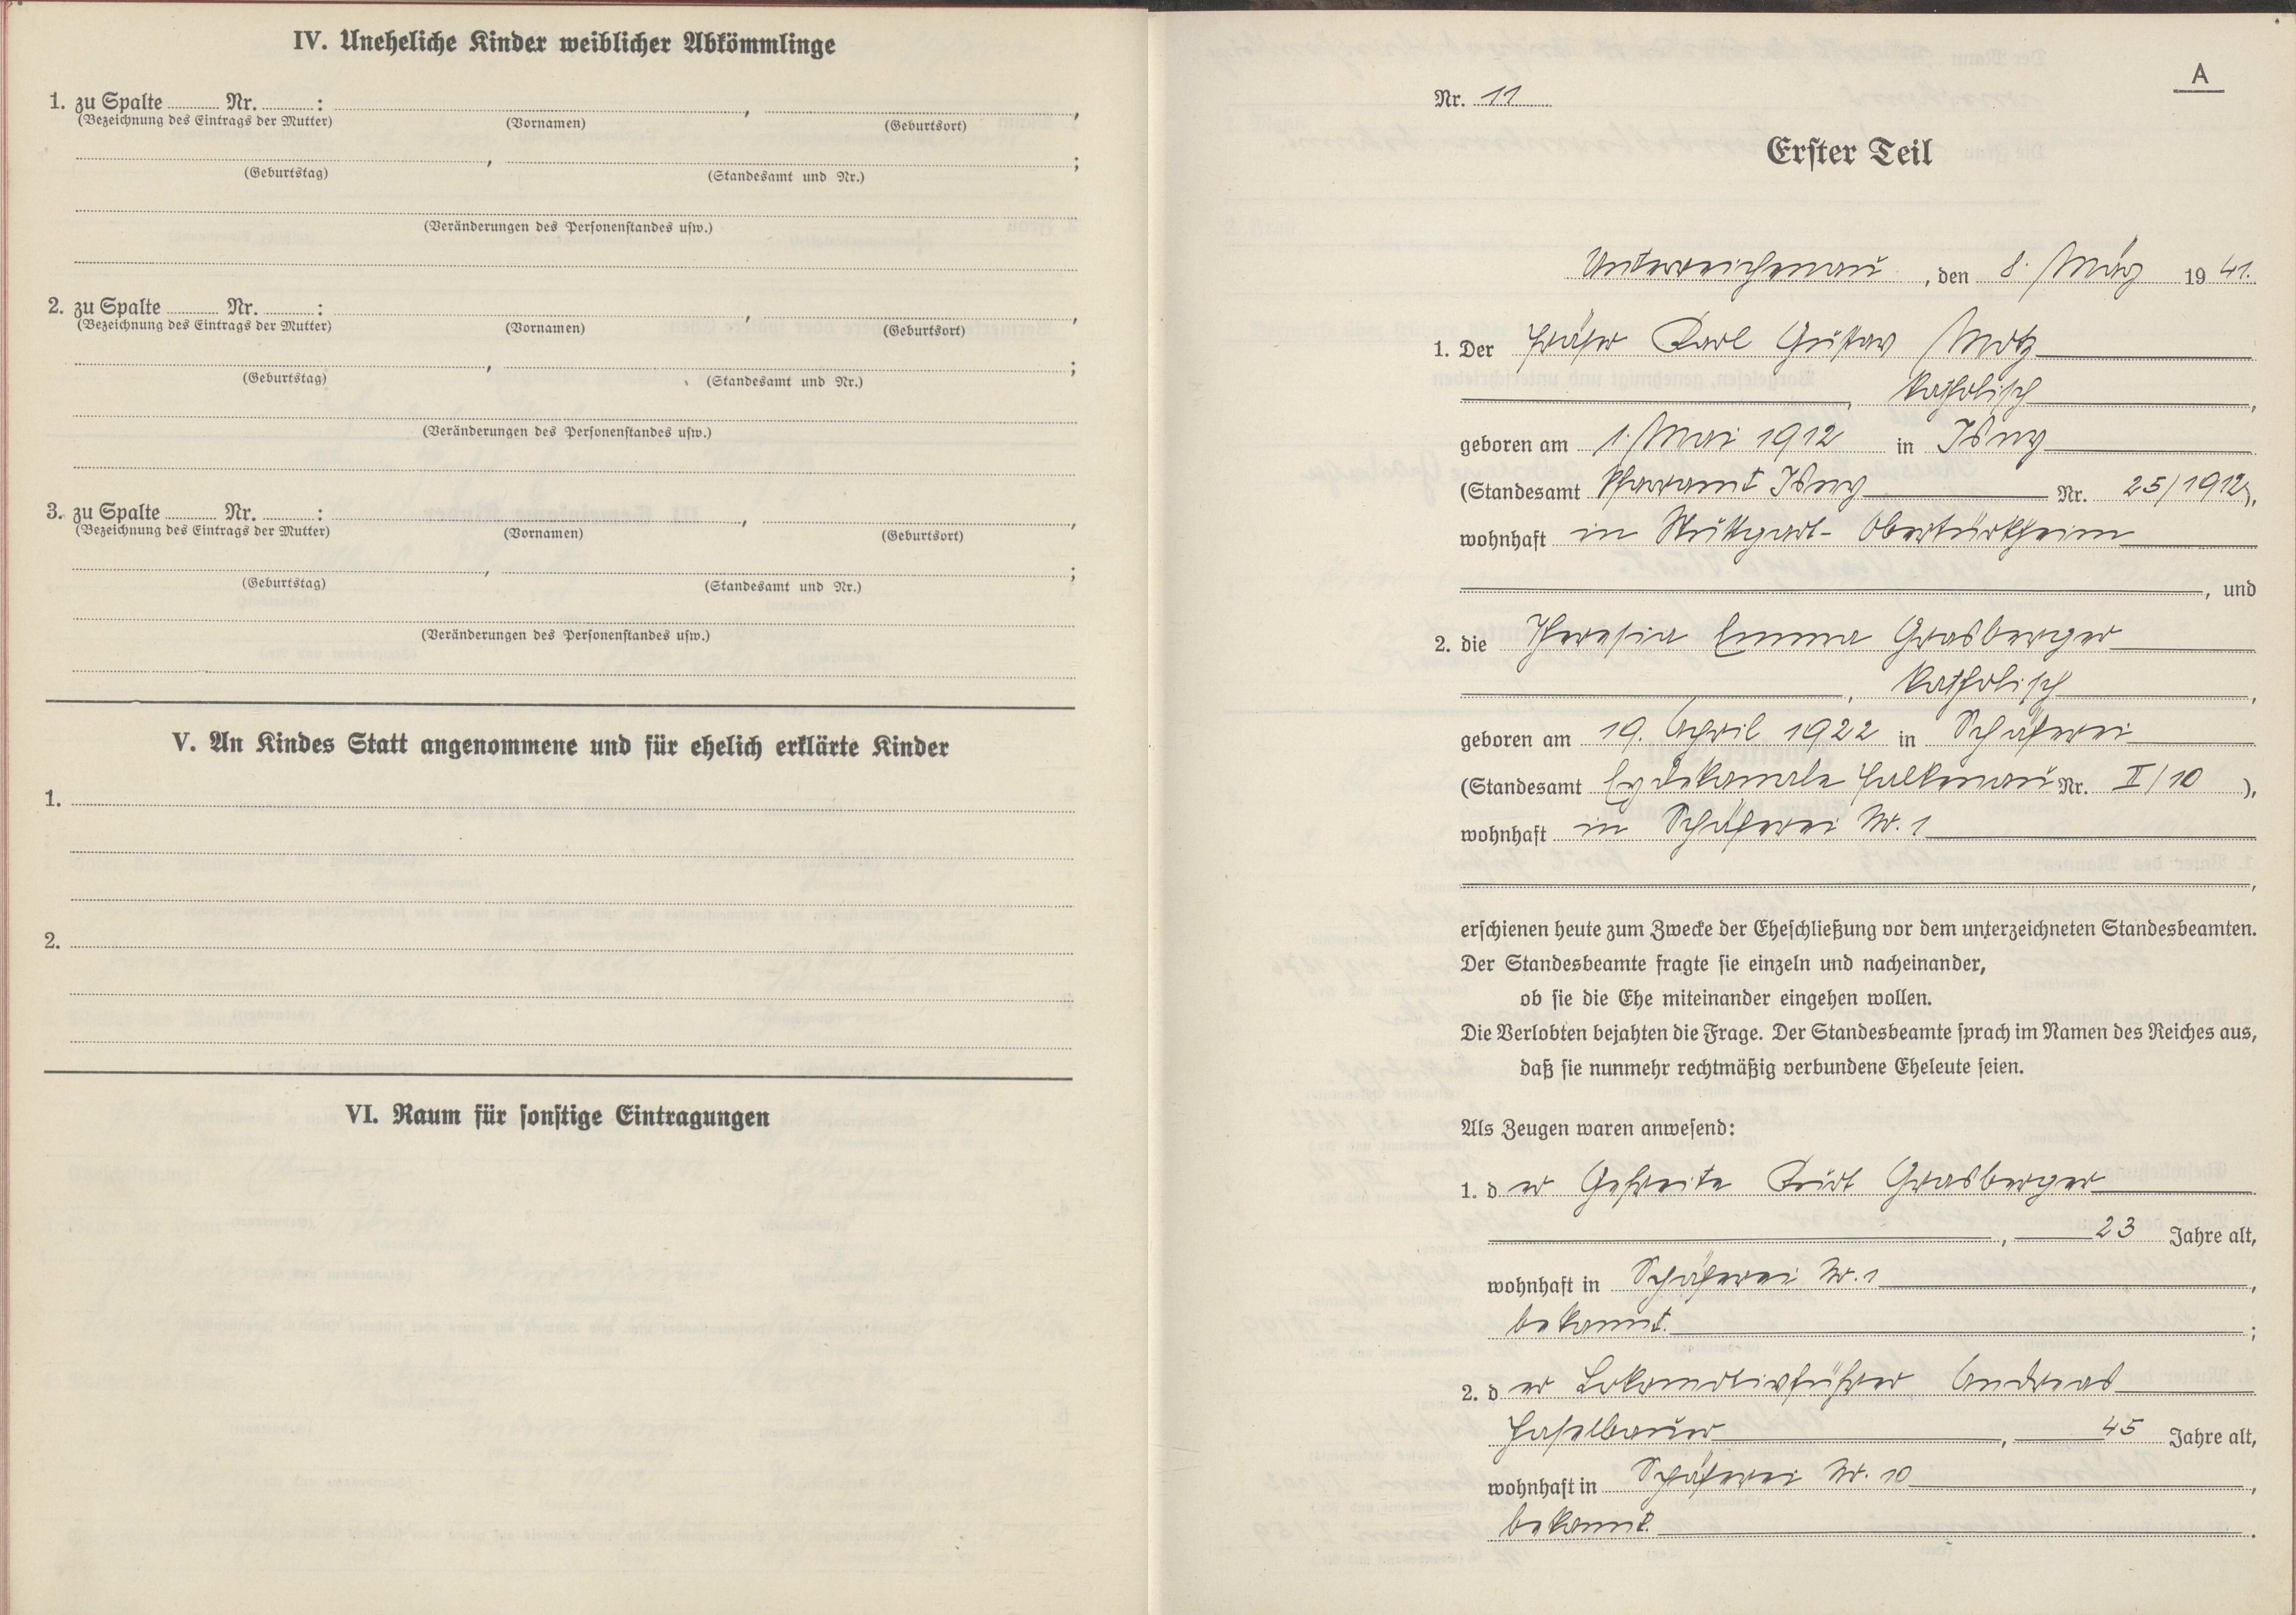 IV. Uneheliche Kinder weiblicher Abkömmlinge
1. zu Spalte ........ Nr. ........ : ........ , ........ ,
(Bezeichnung des Eintrags der Mutter) (Vornamen) (Geburtsort)
........ , ........ ;
(Geburtstag) (Standesamt und Nr.)
(Veränderungen des Personenstandes usw.)
2. zu Spalte ........ Nr. ........ : ........ , ........ ,
(Bezeichnung des Eintrags der Mutter) (Vornamen) (Geburtsort)
........ , ........ ;
(Geburtstag) (Standesamt und Nr.)
(Veränderungen des Personenstandes usw.)
3. zu Spalte ........ Nr. ........ : ........ , ........ ,
(Bezeichnung des Eintrags der Mutter) (Vornamen) (Geburtsort)
........ , ........ ;
(Geburtstag) (Standesamt und Nr.)
(Veränderungen des Personenstandes usw.)
V. An Kindes Statt angenommene und für ehelich erklärte Kinder
1.
2.
VI. Raum für sonstige Eintragungen
A
Nr. 11
Erster Teil
Unterreichenau, den 8. März 1941.
1. Der Karl Gustav Motz
, katholisch,
geboren am 1. Mai 1912 in Isny
(Standesamt Pfarramt Isny Nr. 25/1912),
wohnhaft in Stuttgart-Obertürkheim
, und
2. die Theresia Emma Grasberger
, katholisch,
geboren am 19. April 1922 in Schäferei
(Standesamt Falkenau Nr. II/10),
wohnhaft in Schäferei Nr. 1
,
erschienen heute zum Zwecke der Eheschließung vor dem unterzeichneten Standesbeamten.
Der Standesbeamte fragte sie einzeln und nacheinander,
ob sie die Ehe miteinander eingehen wollen.
Die Verlobten bejahten die Frage. Der Standesbeamte sprach im Namen des Reiches aus,
daß sie nunmehr rechtmäßig verbundene Eheleute seien.
Als Zeugen waren anwesend:
1. der Gefreite Kurt Grasberger
, 23 Jahre alt,
wohnhaft in Schäferei Nr. 1,
bekannt.;
2. der Lokomotivführer Andreas
Haselbauer, 45 Jahre alt,
wohnhaft in Schäferei Nr. 10,
bekannt.